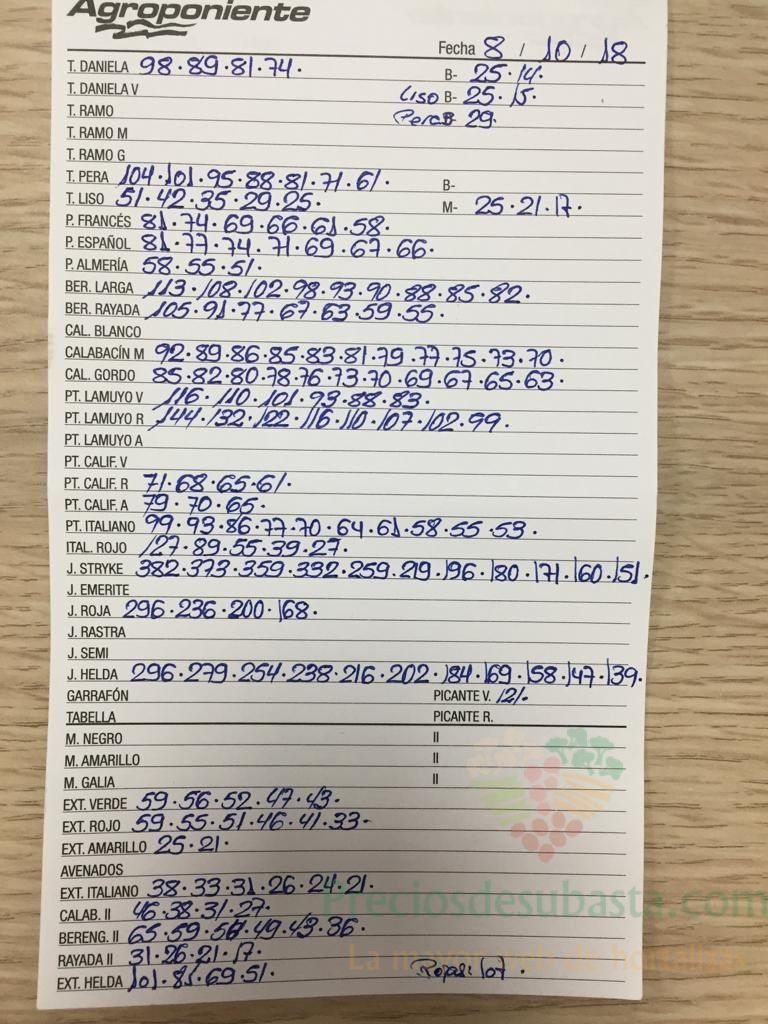 Agroponiente
Fecha 8 / 10 / 18
T. DANIELA 98·89·81·74· B- 25·14·
T. DANIELA V Liso B- 25·15·
T. RAMO Pera B 29·
T. RAMO M
T. RAMO G
T. PERA 104·101·95·88·81·71·61· B-
T. LISO 51·42·35·29·25· M- 25·21·17·
P. FRANCÉS 81·74·69·66·61·58·
P. ESPAÑOL 81·77·74·71·69·67·66·
P. ALMERÍA 58·55·51·
BER. LARGA 113·108·102·98·93·90·88·85·82·
BER. RAYADA 105·91·77·67·63·59·55·
CAL. BLANCO
CALABACÍN M 92·89·86·85·83·81·79·77·75·73·70·
CAL. GORDO 85·82·80·78·76·73·70·69·67·65·63·
PT. LAMUYO V 116·110·101·93·88·83·
PT. LAMUYO R 144·132·122·116·110·107·102·99·
PT. LAMUYO A
PT. CALIF. V
PT. CALIF. R 71·68·65·61·
PT. CALIF. A 79·70·65·
PT. ITALIANO 99·93·86·77·70·64·61·58·55·53·
ITAL. ROJO 127·89·55·39·27·
J. STRYKE 382·373·359·332·259·219·196·180·171·160·151·
J. EMERITE
J. ROJA 296·236·200·168·
J. RASTRA
J. SEMI
J. HELDA 296·279·254·238·216·202·184·169·158·147·139·
GARRAFÓN PICANTE V. 121·
TABELLA PICANTE R.
M. NEGRO II
M. AMARILLO II
M. GALIA II
EXT. VERDE 59·56·52·47·43·
EXT. ROJO 59·55·51·46·41·33·
EXT. AMARILLO 25·21·
AVENADOS
EXT. ITALIANO 38·33·31·26·24·21·
Preciosdesubasta.com
CALAB. II 46·38·31·27·
BERENG. II 65·59·56·49·43·36·
RAYADA II 31·26·21·17·
La mayor web de hortalizas
EXT. HELDA 101·81·69·51· 107·